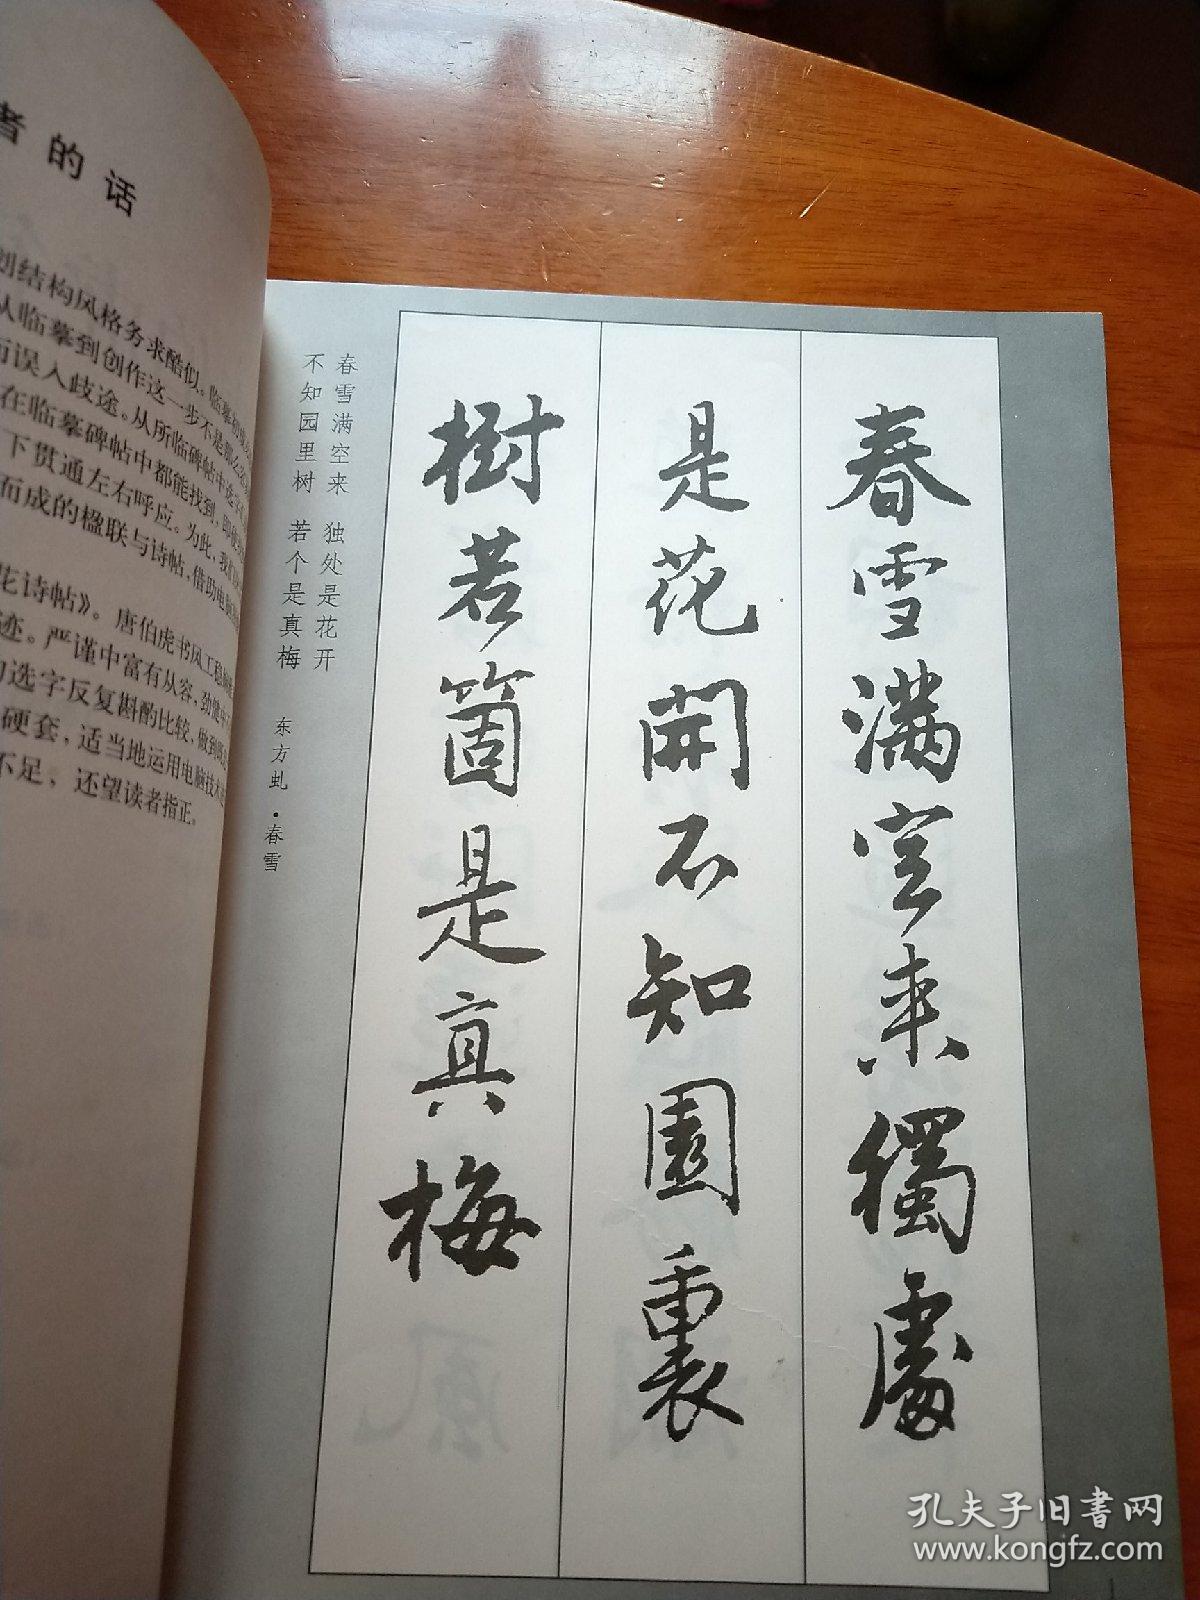 者的话
划结构风格务求酷似。临摹
从临摹到创作这一步不是那么
而误入歧途。从所临碑帖中选字
在临摹碑帖中都能找到,即使
下贯通左右呼应。为此,我们
而成的楹联与诗帖,借助电脑
花诗帖》。唐伯虎书风工稳
迹。严谨中富有从容,劲健中
选字反复斟酌比较,做到既
硬套,适当地运用电脑技术
不足,还望读者指正。
春雪滿空来獨處
是花開不知園裏
樹若箇是真梅
春雪满空来 独处是花开
不知园里树 若个是真梅
东方虬·春雪
孔夫子旧书网
www.kongfz.com